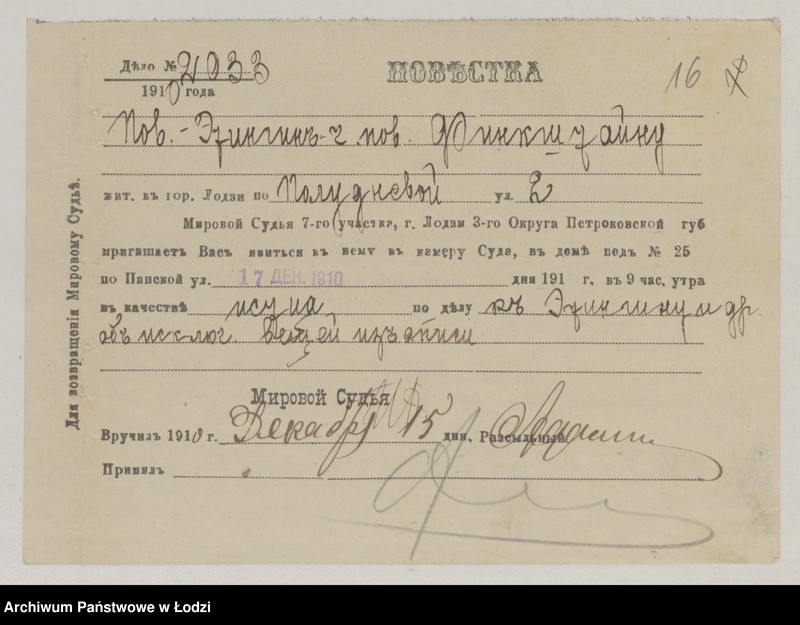 Дѣло № 2033
1910 года
ПОВѢСТКА
16
Пов. - пов. Финкштайну
жит. въ гор. Лодзи по Полудневой ул. 2
Мировой Судья 7-го участка, г. Лодзи 3-го Округа Петроковской губ
приглашаетъ Васъ явиться къ нему въ камеру Суда, въ домѣ подъ № 25
по Панской ул. 17 ДЕК. 1910 дня 191 г. въ 9 час. утра
въ качествѣ истца по дѣлу къ Этингину и др.
объ исключ. вещей изъ описи
Мировой Судья
Вручилъ 1910 г. Декабря 15 дня. Разсыльный
Принялъ
Для возвращенія Мировому Судьѣ.
Archiwum Państwowe w Łodzi